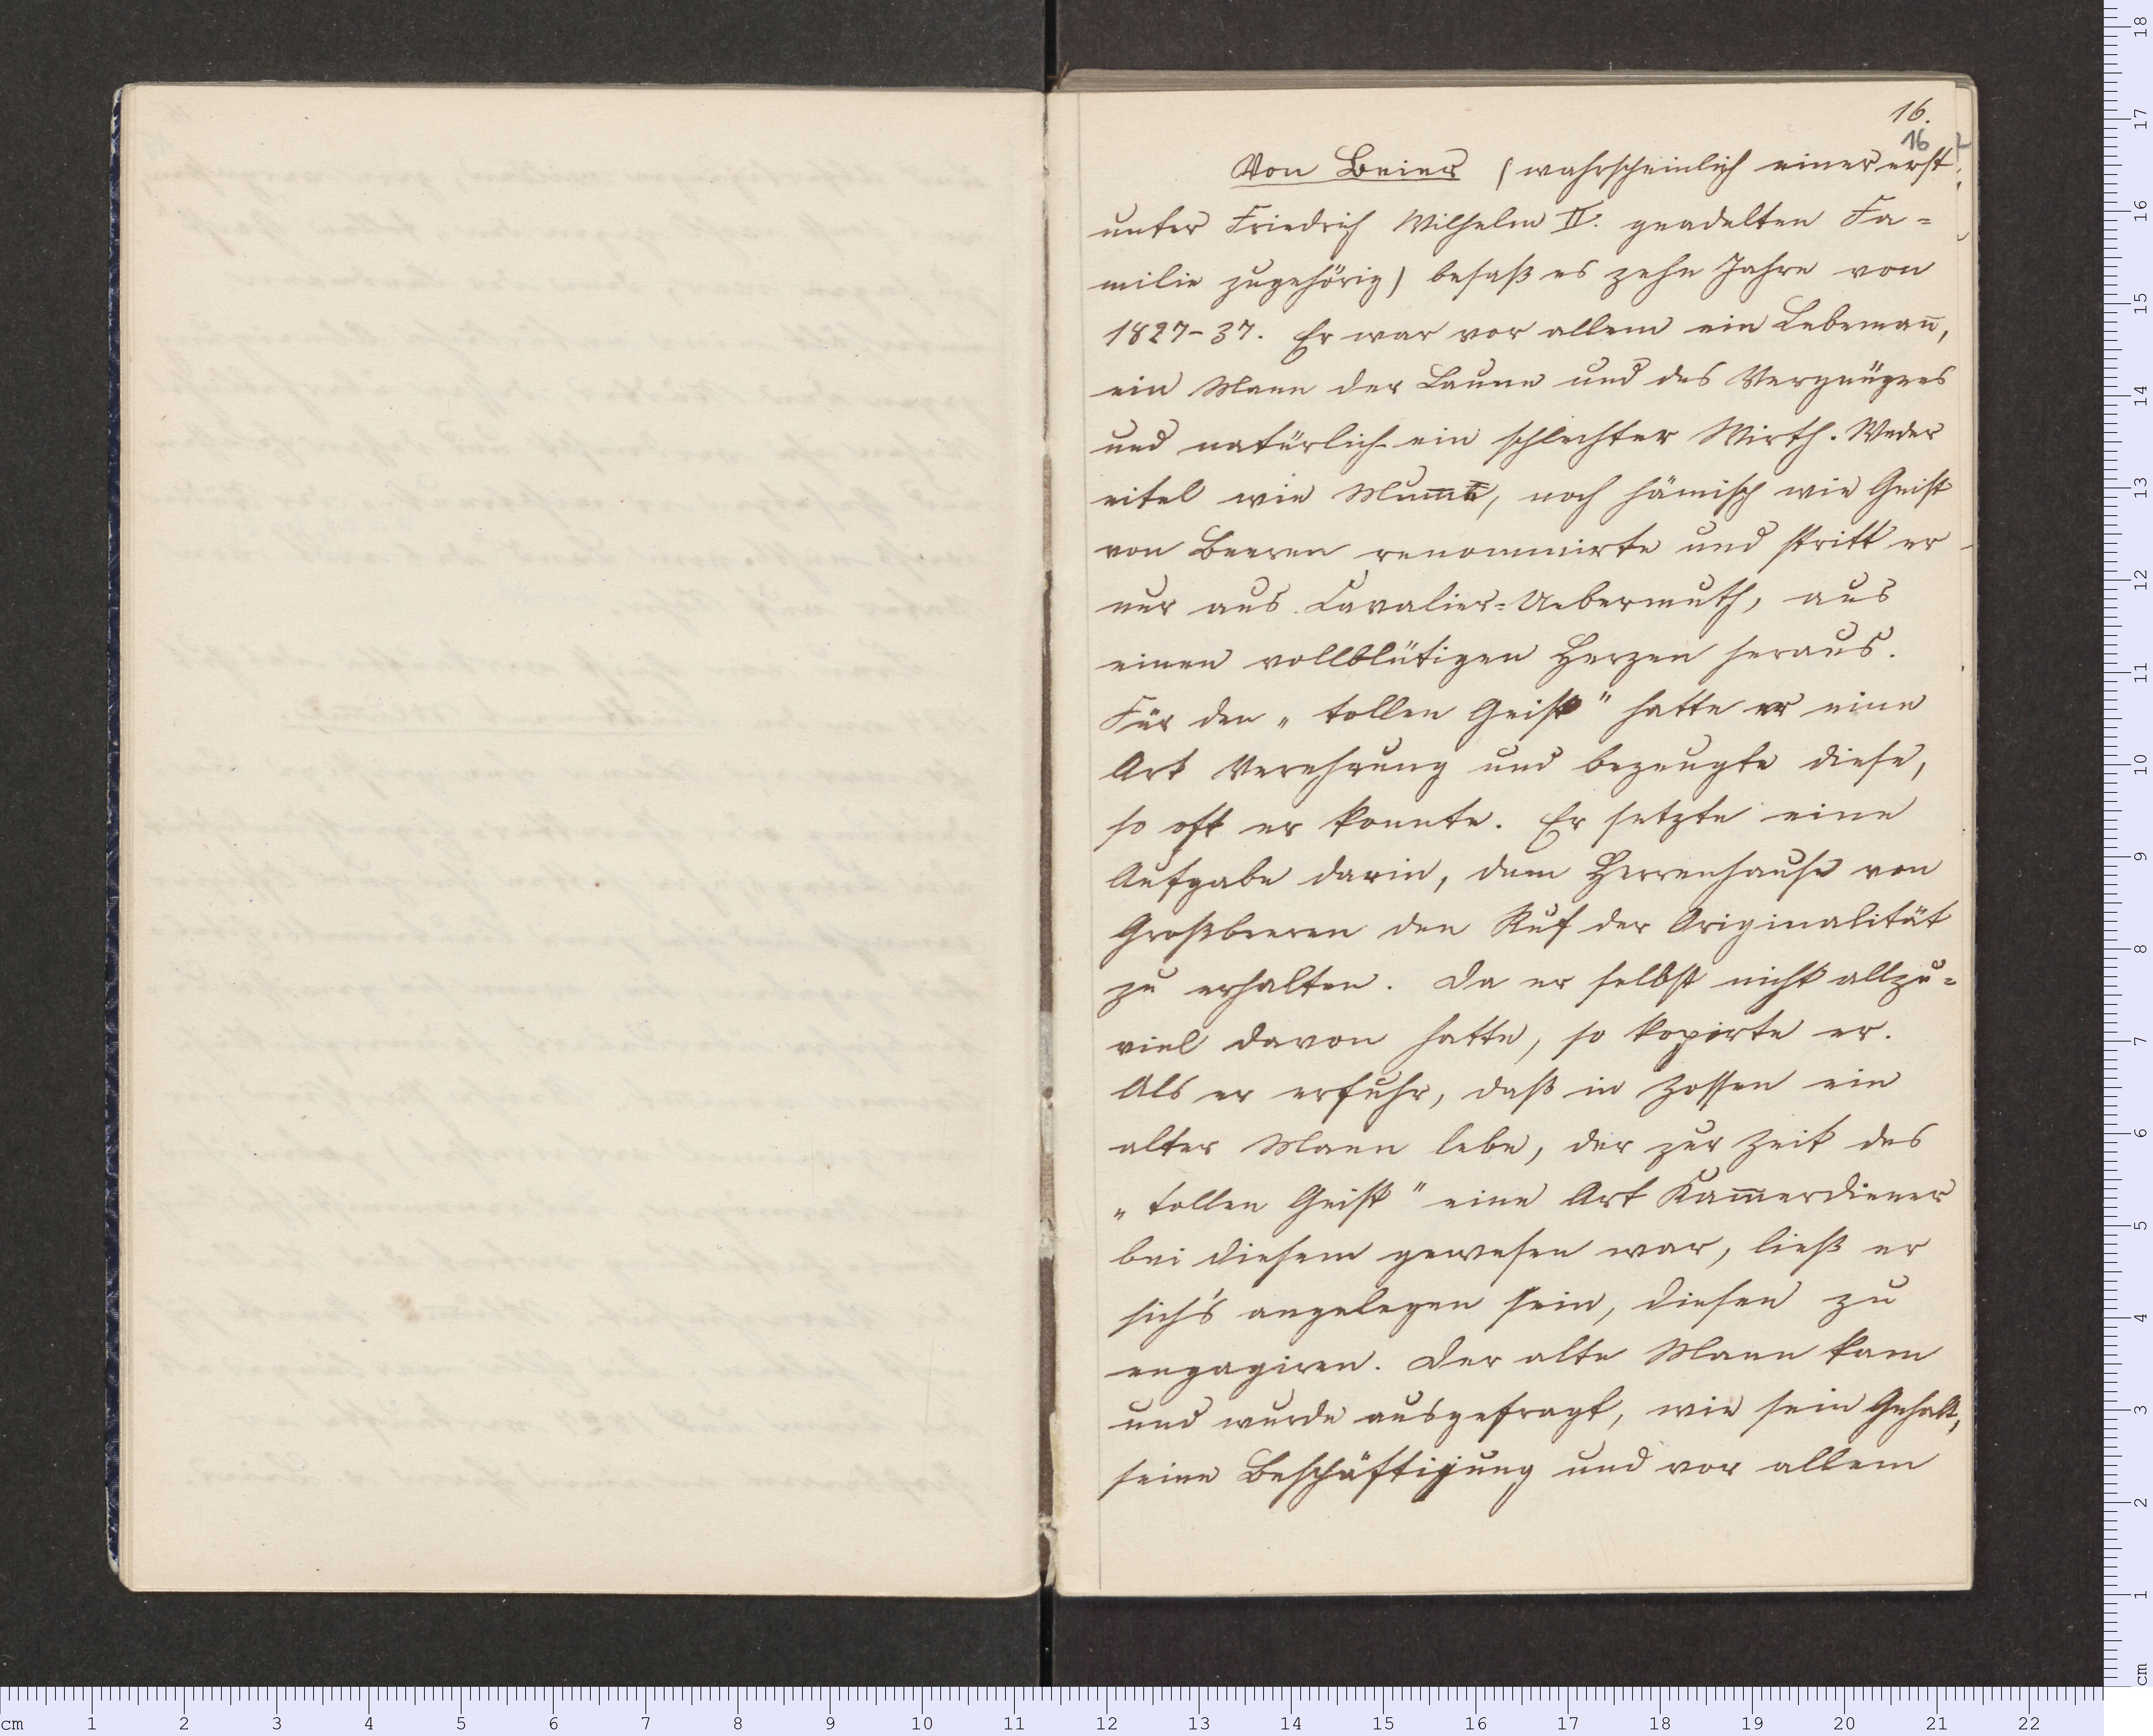 16.
16
Von Beier (wahrscheinlich einer erst
unter Friedrich Wilhelm II. geadelten Fa-
milie zugehörig) besaß es zehn Jahre von
1827-37. Er war vor allem ein Lebemañ,
ein Mann der Laune und des Vergnügens
und natürlich ein schlechter Wirth. Weder
eitel wie Mum̄e, noch hämisch wie Geist
von Beeren renommirte und stritt er
nur aus Cavalier-Uebermuth, aus
einen vollblütigen Herzen heraus.
Für den „tollen Geist" hatte er eine
Art Verehrung und bezeugte diese,
so oft er konnte. Er setzte eine
Aufgabe darin, dem Herrenhause von
Großbeeren den Ruf der Originalität
zu erhalten. Da er selbst nicht allzu-
viel davon hatte, so kopirte er.
Als er erfuhr, daß in Zossen ein
alter Mann lebe, der zur Zeit des
„tollen Geist" eine Art Kam̄erdiener
bei diesem gewesen war, ließ er
sich's angelegen sein, diesen zu
engagiren. Der alte Mann kam
und wurde ausgefragt, wie sein Gehalt,
seine Beschäftigung und vor allem
cm 1 2 3 4 5 6 7 8 9 10 11 12 13 14 15 16 17 18 19 20 21 22
cm 1 2 3 4 5 6 7 8 9 10 11 12 13 14 15 16 17 18